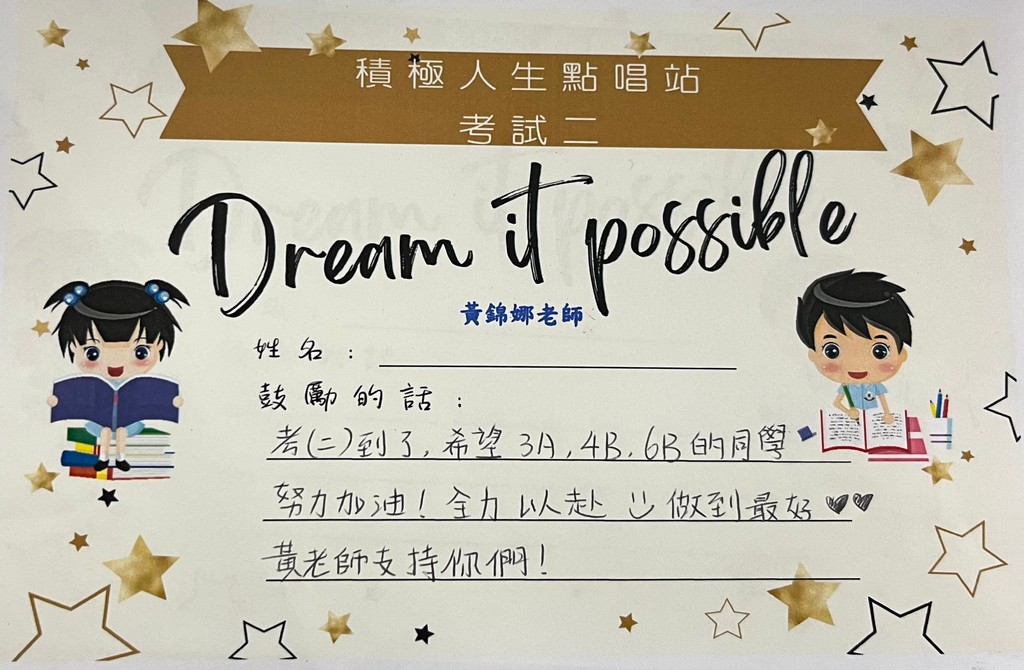 積極人生點唱站
考試二
Dream it possible
黃錦娜老師
姓名：
鼓勵的話：
考(二)到了，希望 3A，4B，6B 的同學
努力加油！全力以赴 做到最好
黃老師支持你們！